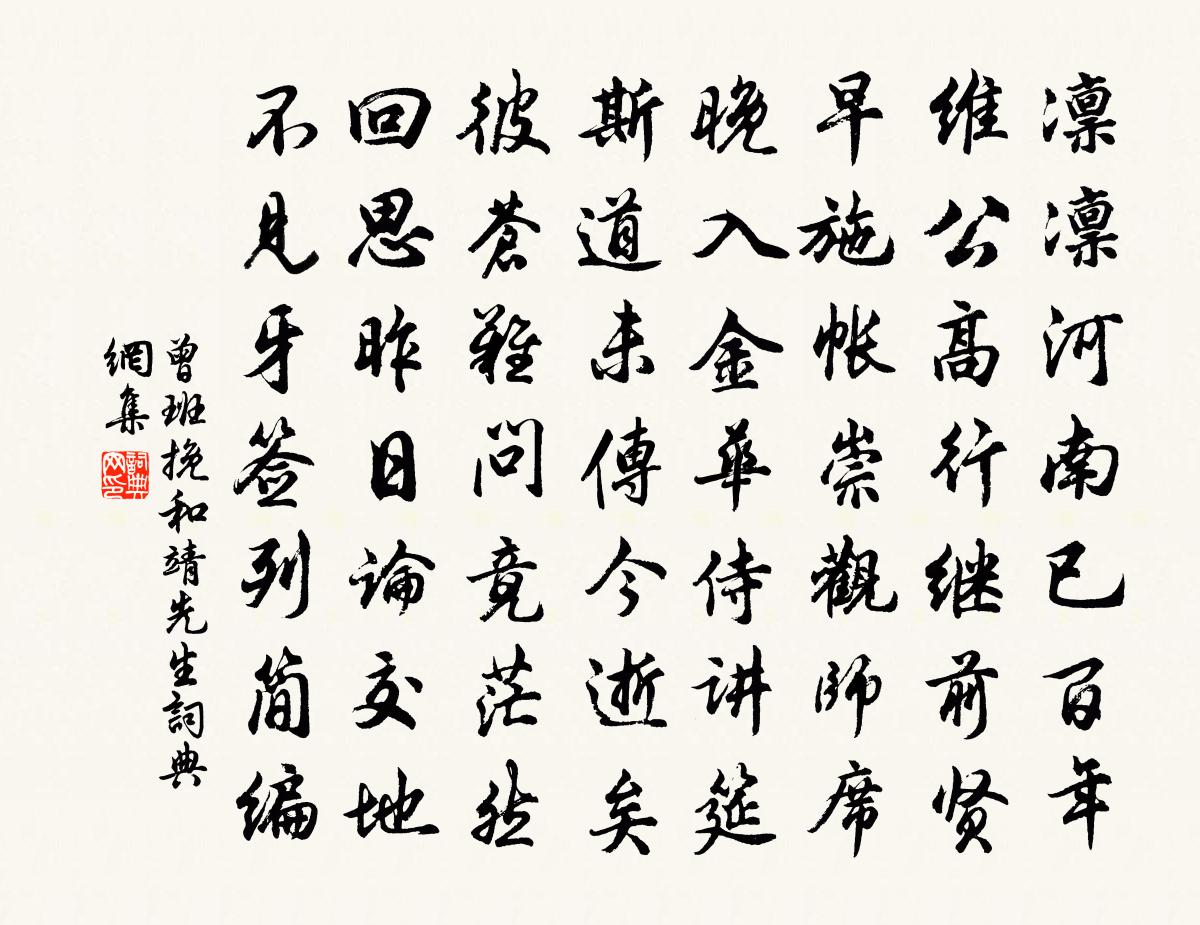 凛凛河南已百年
维公高行继前贤
早施帐崇觀師席
晚入金華侍讲筵
斯道未傳今逝矣
彼蒼難问竟茫然
回思昨日論交地
不見牙签列简编
曾班挽和靖先生詞典
網集
詞典网印